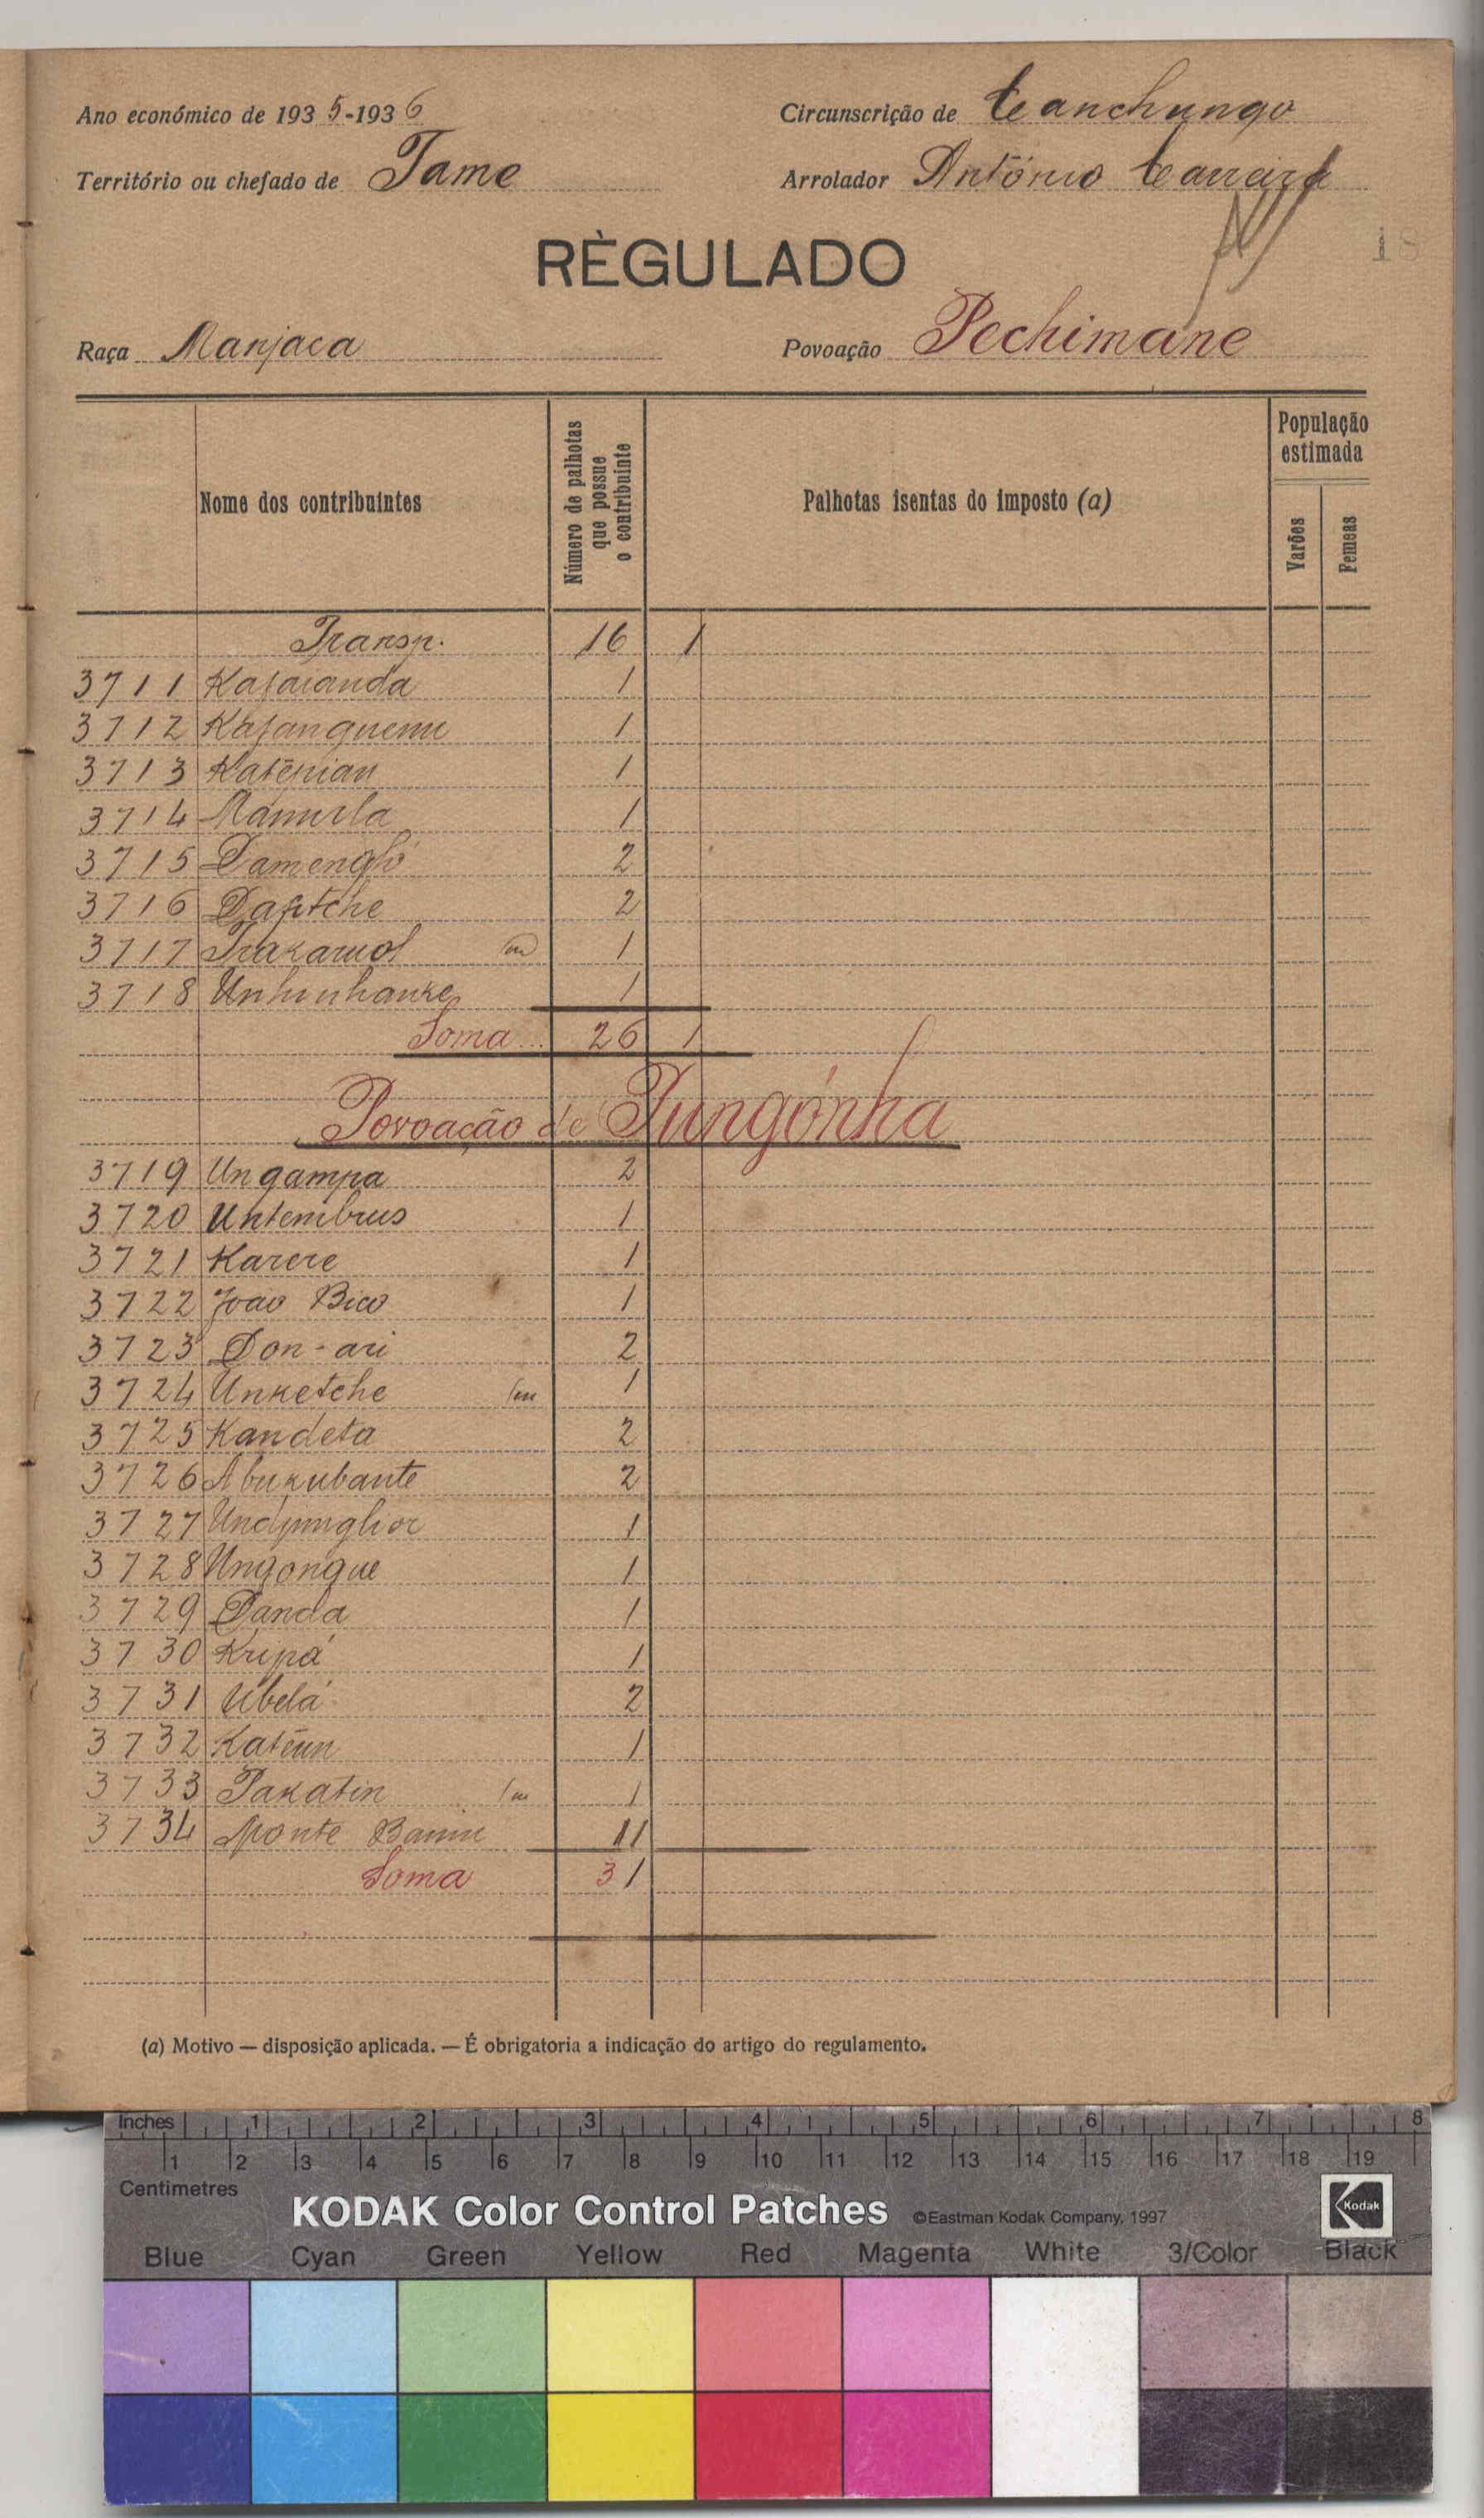 Ano económico de 1935-1936
Circunscrição de Canchungo
Território ou chefado de Tame
Arrolador António Carreira
RÈGULADO
18
Raça Manjaca
Povoação Pechimane
Nome dos contribuintes
Número de palhotas que possue o contribuinte
Palhotas isentas do imposto (a)
População estimada
Varões
Femeas
Transp. 16 1
3711 1
3712 1
3713 Katénian 1
3714 1
3715 2
3716 2
3717 1
3718 1
Soma 26 1
Povoação de Pungónha
3719 Ungampa 2
3720 Untembrus 1
3721 Karere 1
3722 Joao Bico 1
3723 Don-ari 2
3724 Unketche 1
3725 Kandeta 2
3726 Abukubante 2
3727 1
3728 Ungongue 1
3729 Danda 1
3730 Kripá 1
3731 Ubelá 2
3732 1
3733 Pakatin 1
3734 Monte 11
Soma 31
(a) Motivo — disposição aplicada. — É obrigatoria a indicação do artigo do regulamento.
Inches 1 2 3 4 5 6 7 8
1 2 3 4 5 6 7 8 9 10 11 12 13 14 15 16 17 18 19
Centimetres
KODAK Color Control Patches ©Eastman Kodak Company, 1997 Kodak
Blue Cyan Green Yellow Red Magenta White 3/Color Black